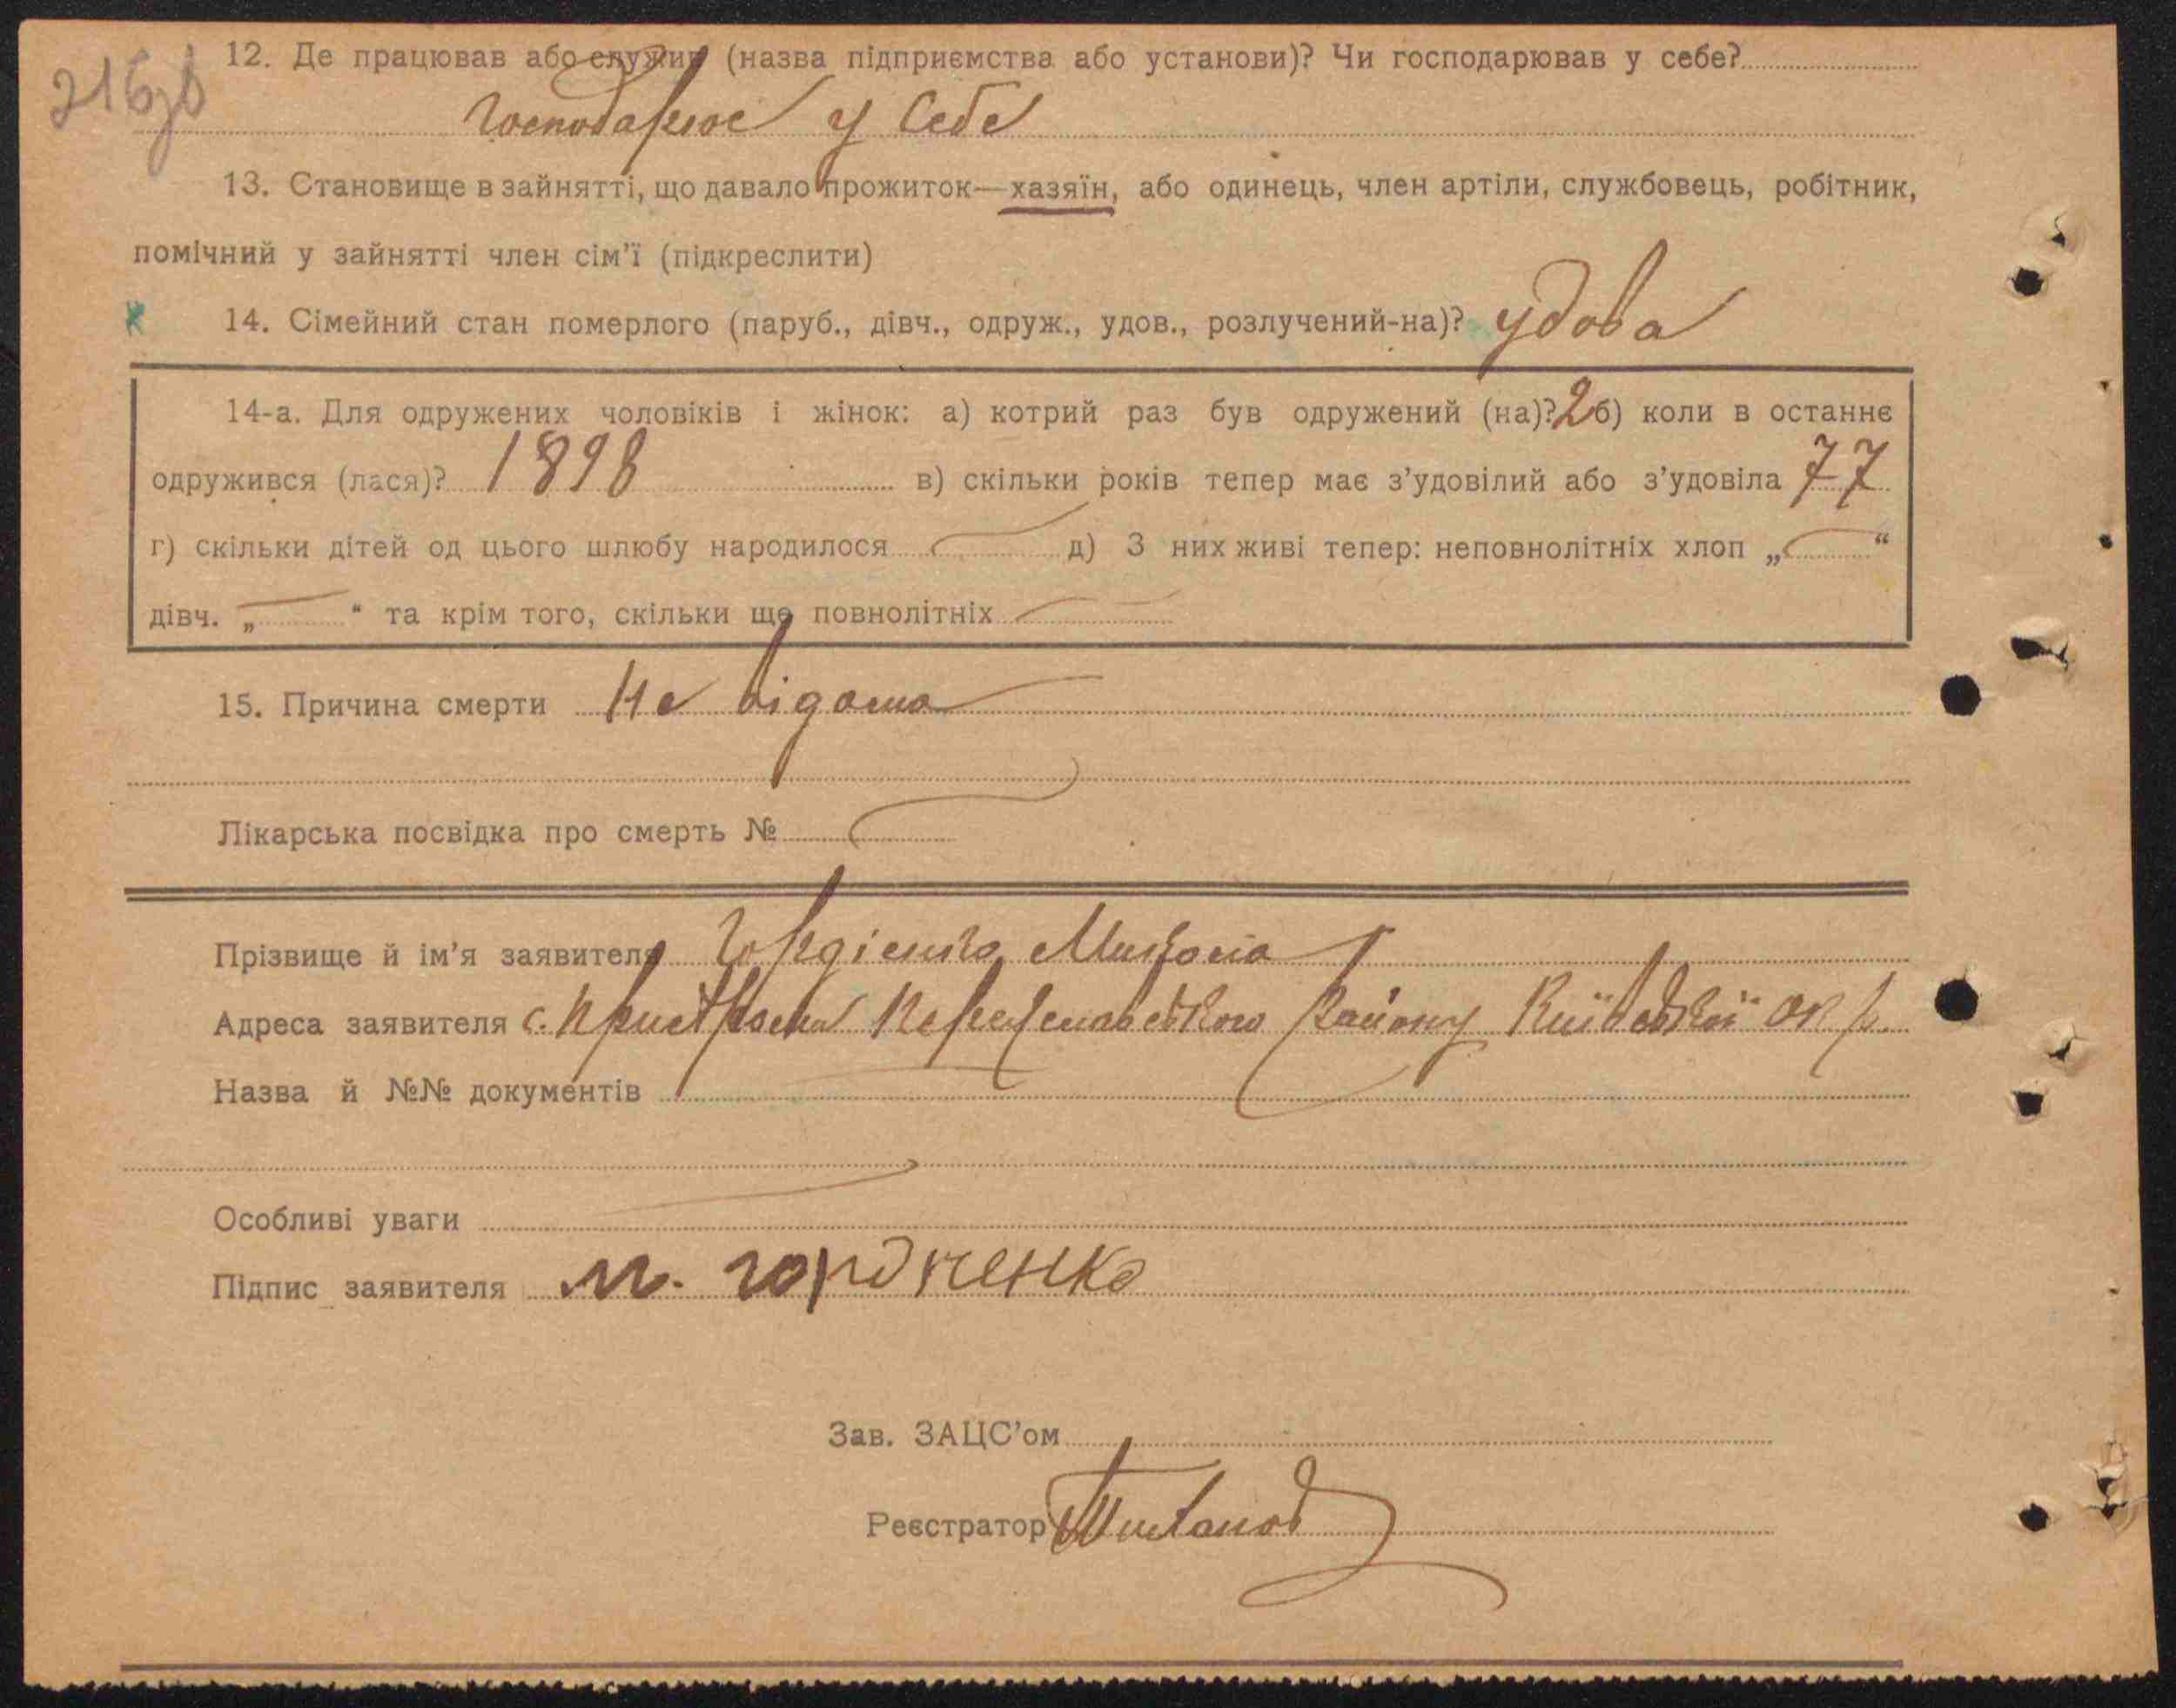 216зв
12. Де працював або служив (назва підприємства або установи)? Чи господарював у себе?
господарює у себе
13. Становище в зайнятті, що давало прожиток—хазяїн, або одинець, член артіли, службовець, робітник,
помічний у зайнятті член сім'ї (підкреслити)
14. Сімейний стан померлого (паруб., дівч., одруж., удов., розлучений-на)? удова
14-а. Для одружених чоловіків і жінок: а) котрий раз був одружений (на)? 2 б) коли в останнє
одружився (лася)? 1898 в) скільки років тепер має з'удовілий або з'удовіла 77
г) скільки дітей од цього шлюбу народилося д) З них живі тепер: неповнолітніх хлоп „ “
дівч. „ “ та крім того, скільки ще повнолітніх
15. Причина смерти Не відома
Лікарська посвідка про смерть №
Прізвище й ім'я заявителя Гордієнко Микола
Адреса заявителя с. Пристроми Переяславського району Київської окр.
Назва й №№ документів
Особливі уваги
Підпис заявителя М. гордиенко
Зав. ЗАЦС'ом
Реєстратор